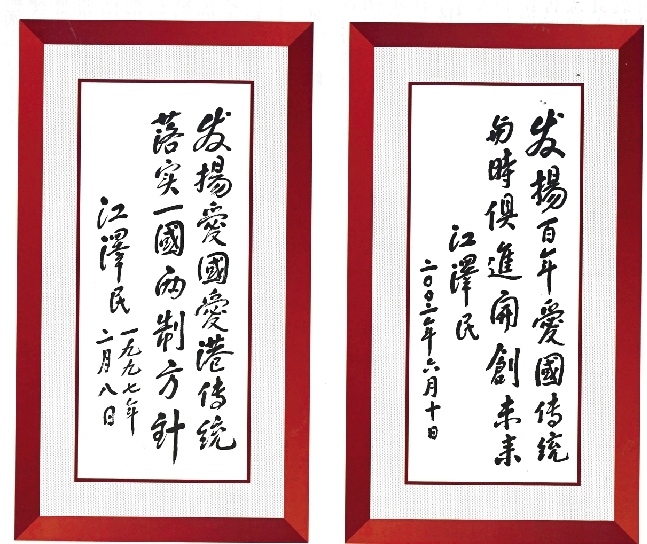 发揚愛國愛港传统
落实一國两制方針
江澤民
一九九七年
二月八日
发揚百年愛國传统
与時俱進开創未来
江澤民
二〇〇二年六月十日